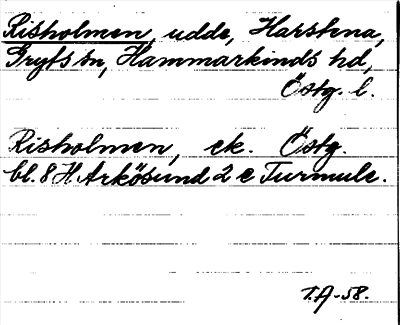 Risholmen, udde, Harstena,
Gryts sn, Hammarkinds hd,
Östg. l.
Risholmen, ek. Östg.
bl. 8 H Arkösund 2 e Turmule.
T.A-58.